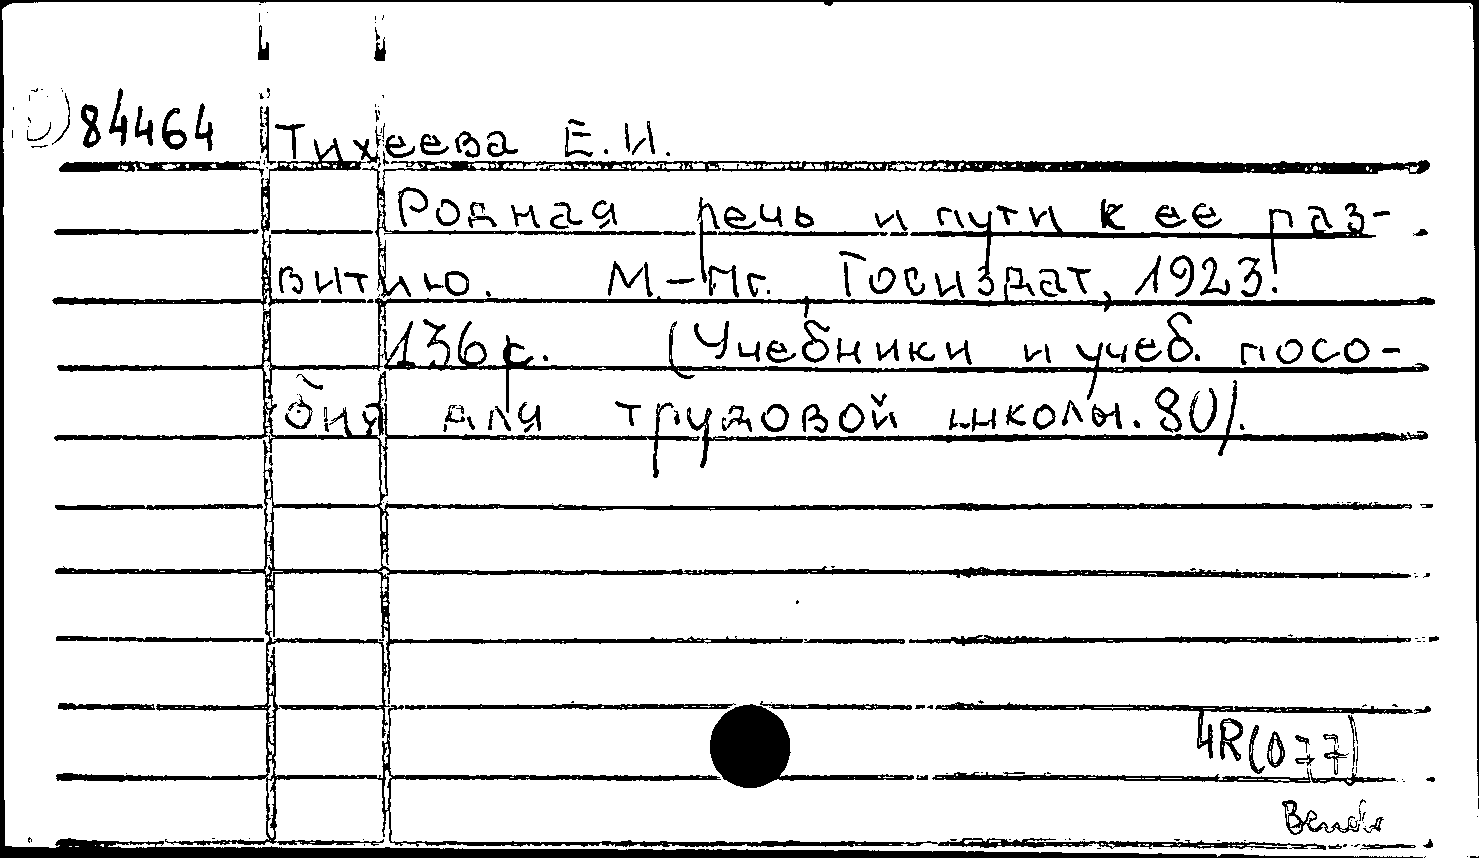 84464 Тихеева Е.И.
Родная речь и пути к ее раз-
витию. М.-Пг. Госиздат, 1923.
136 с. (Учебники и учеб. посо-
бия для трудовой школы. 80/.
4R(077)